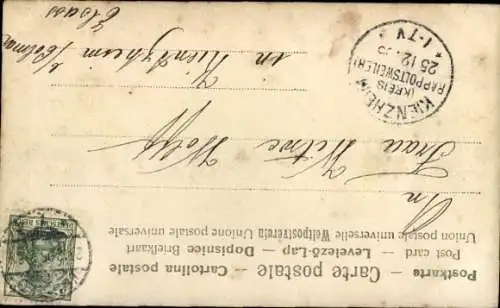 Postkarte — Carte postale — Cartolina postale
Post card — Levelező-Lap — Dopisnice Briefkaart
Union postale universelle Weltpostverein Unione postale universale
An
Frau Witwe Wolff
in Kienzheim b/Colmar
Elsass
KIENZHEIM
(KREIS
RAPPOLTSWEILER)
25 12 05
* 1-7V *